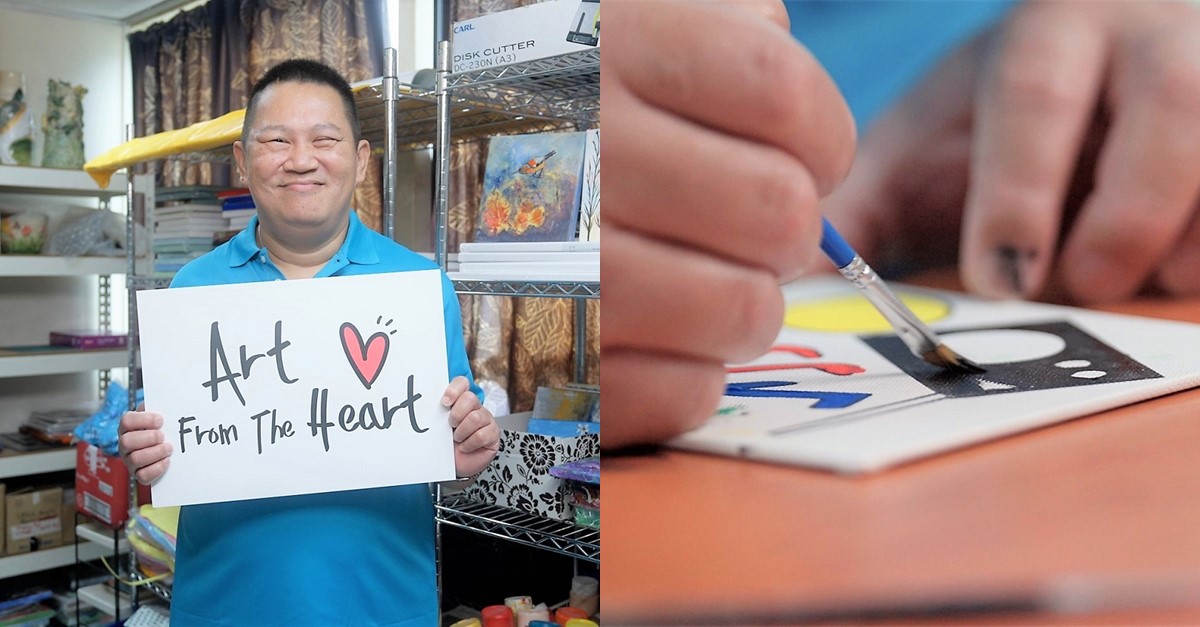 CARL
DISK CUTTER
DC-230N (A3)
Art
From The Heart